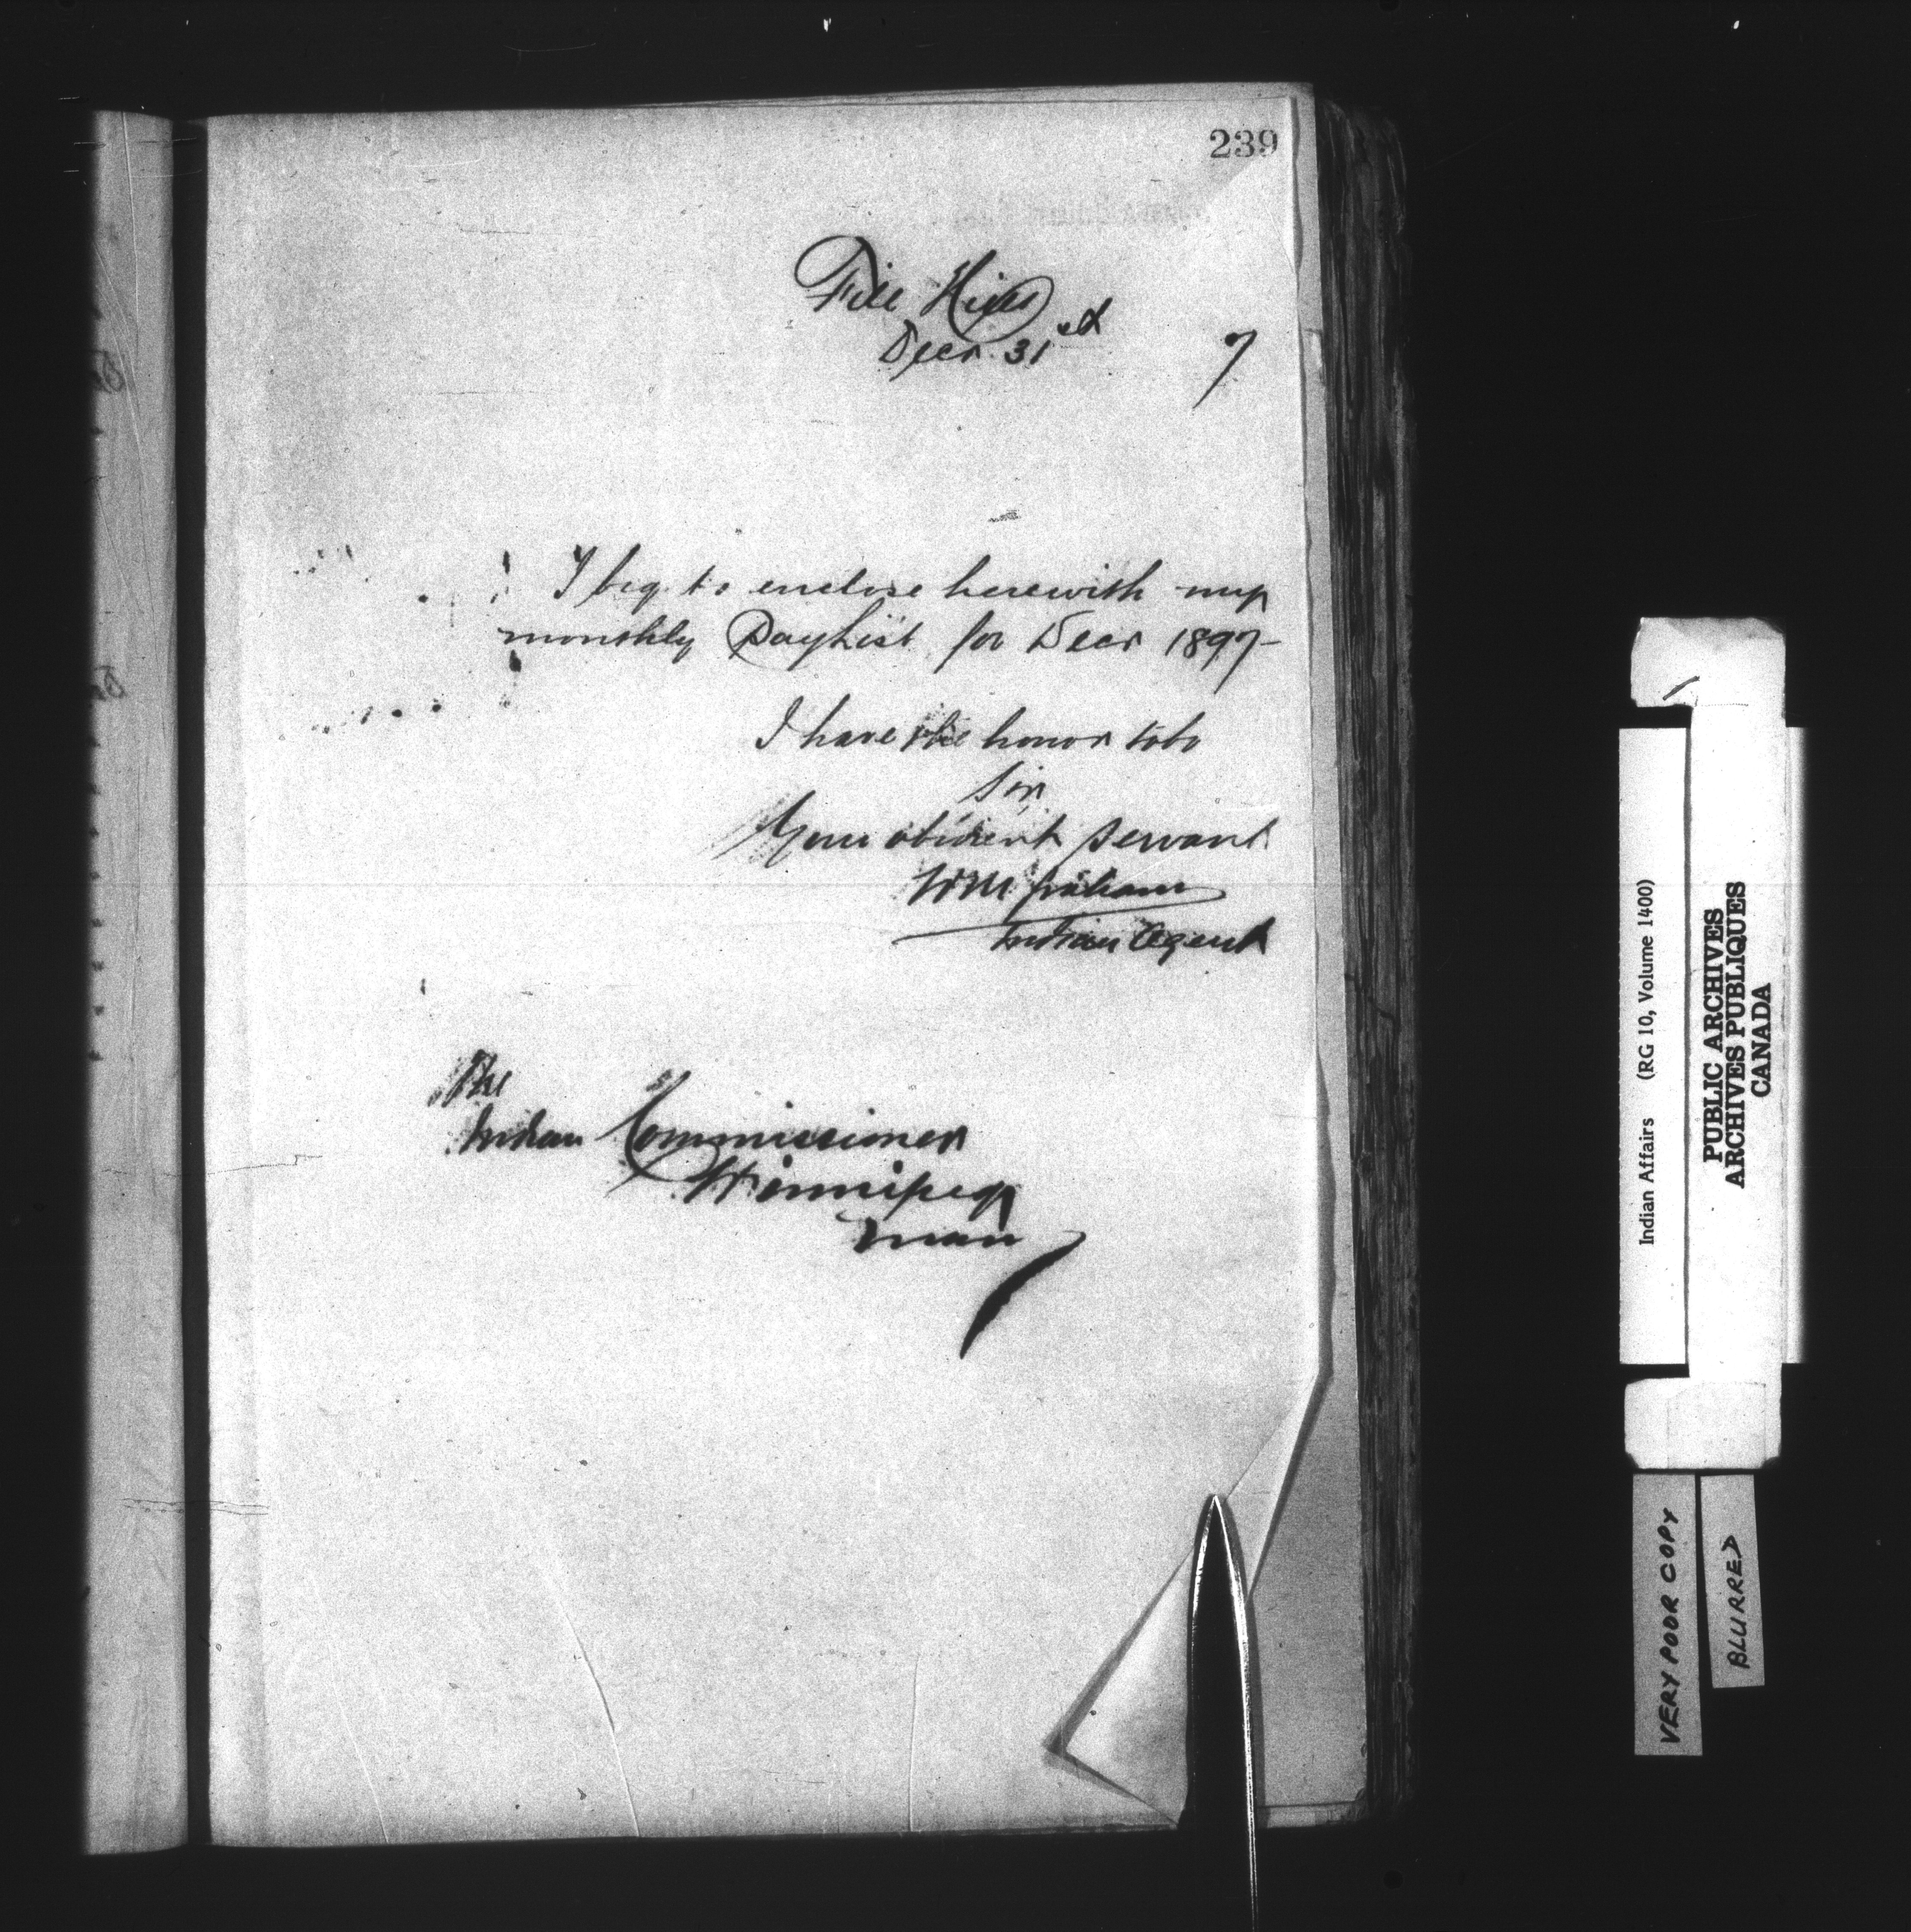 239
File Hills
Decr. 31st 7
I beg to enclose herewith my
monthly PayList for Decr 1897-
I have the honor to be
Sir,
Your obedient servant
WM Graham
Indian Agent
The
Indian Commissioner
Winnipeg
Man
Indian Affairs (RG 10, Volume 1400)
PUBLIC ARCHIVES
ARCHIVES PUBLIQUES
CANADA
VERY POOR COPY
BLURRED